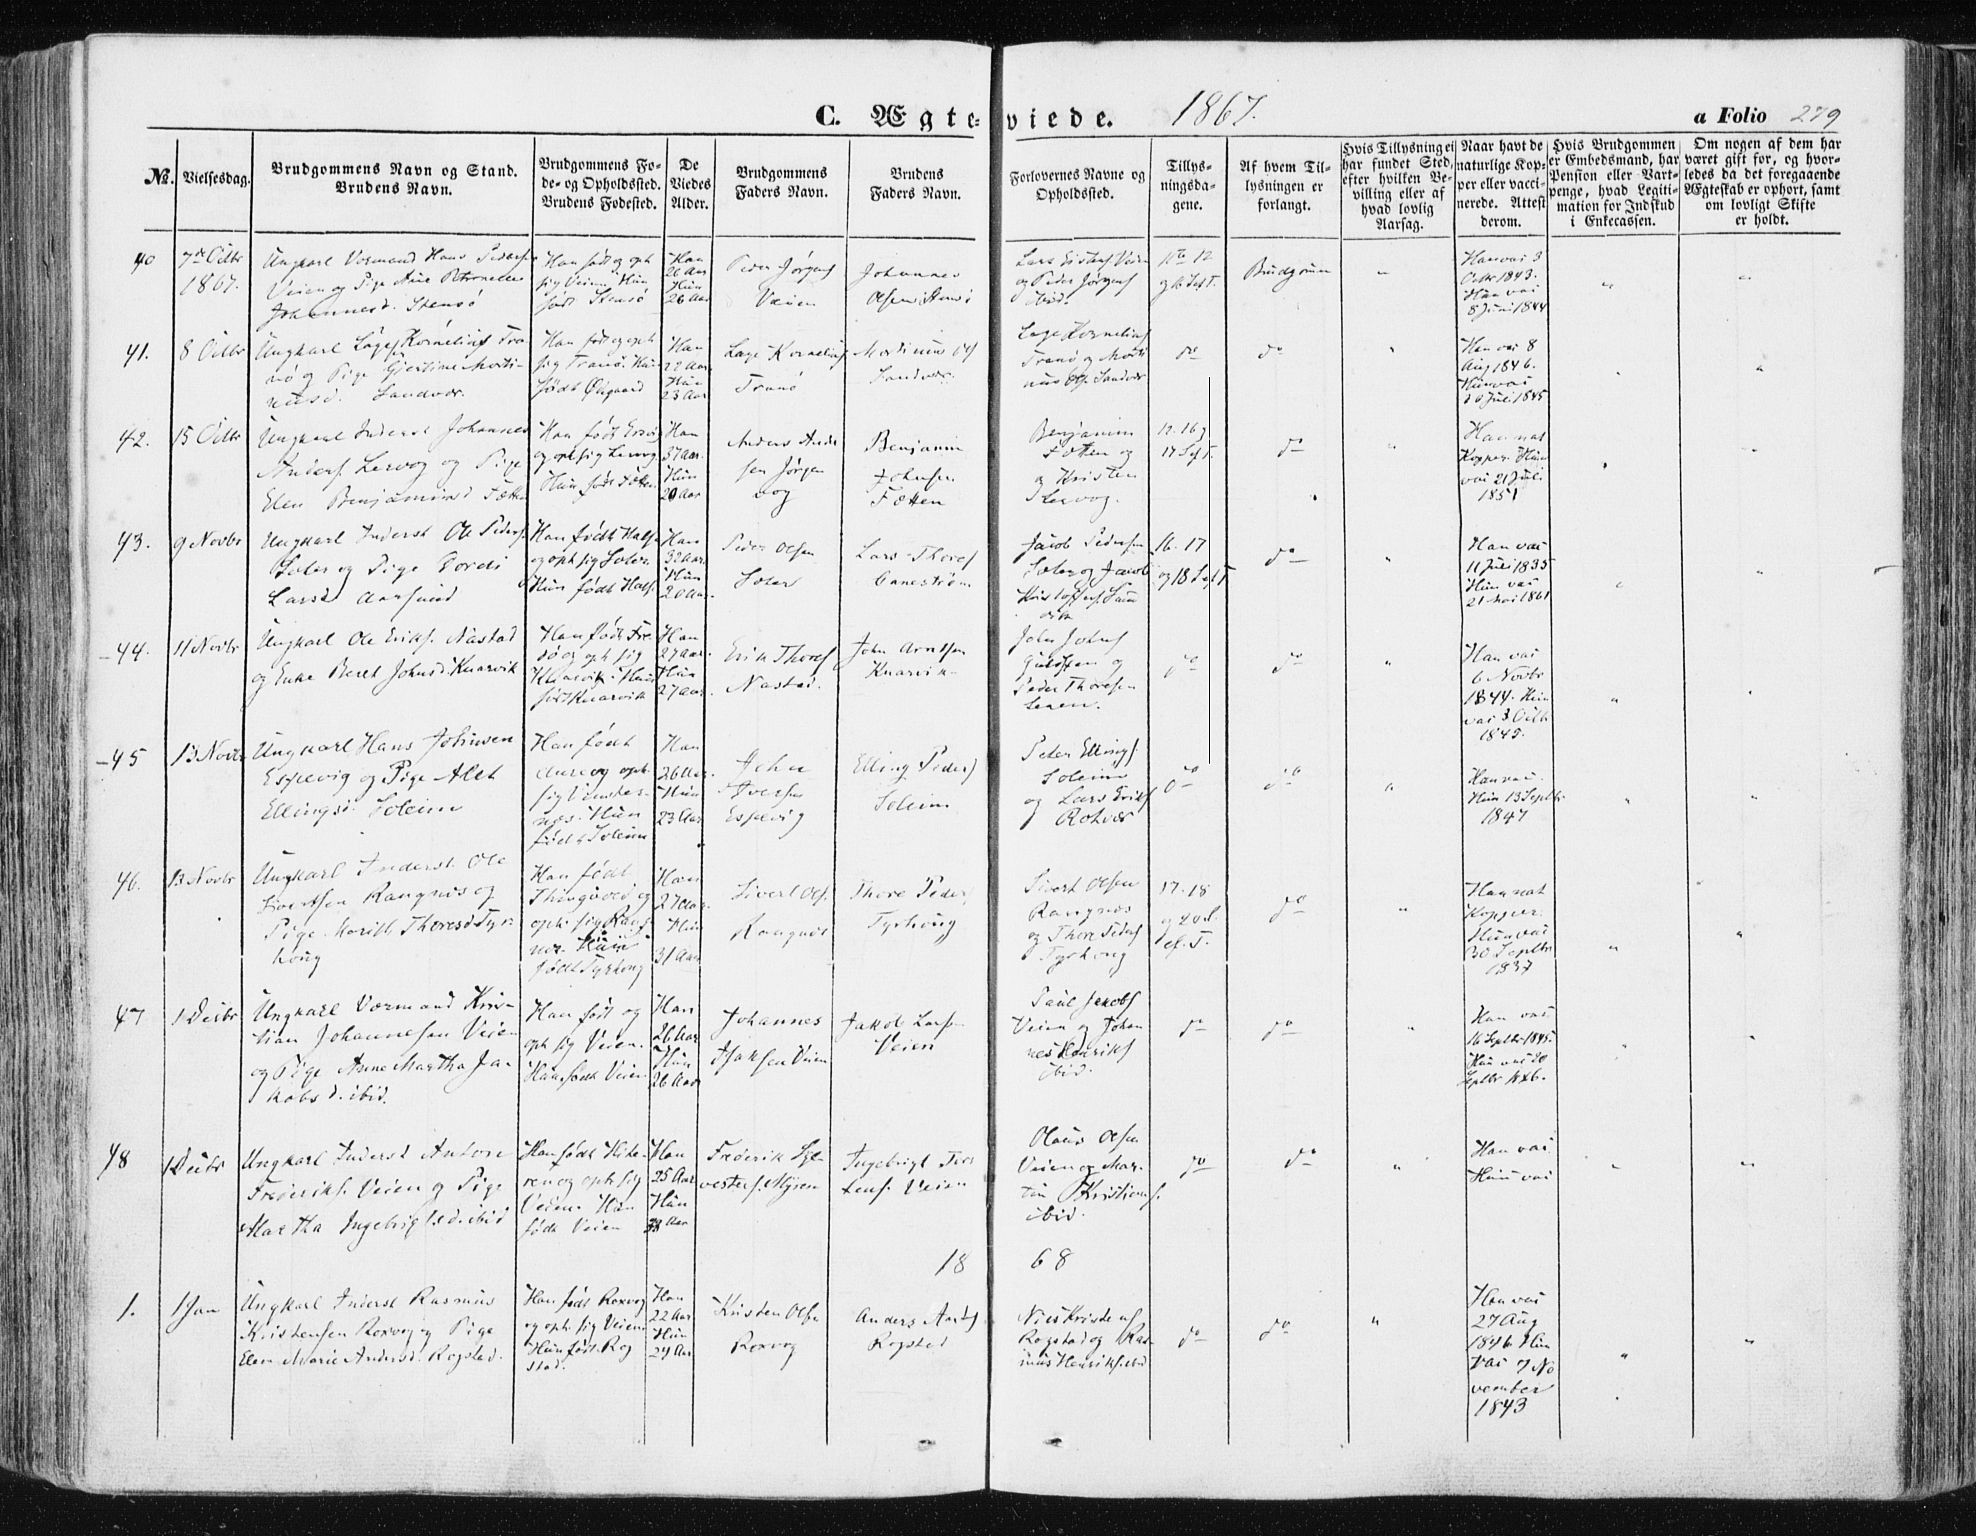 C. Ægteviede. 1867. a Folio 279
No. Vielsesdag. Brudgommens Navn og Stand. Brudens Navn. Brudgommens Føde- og Opholdssted. Brudens Fødested. De Viedes Alder. Brudgommens Faders Navn. Brudens Faders Navn. Forlovernes Navne og Opholdssted. Tillysningsdagene. Af hvem Tillysningen er forlangt. Hvis Tillysning ei har fundet Sted, efter hvilken Bevilling eller af hvad lovlig Aarsag. Naar havt de naturlige Kopper eller vaccinerede. Attest derom. Hvis Brudgommen er Embedsmand, har Pension eller Vartpenge, hvad Legitimation for Indskud i Enkecassen. Om nogen af dem har været gift før, og hvorledes da det foregaaende Ægteskab er ophørt, samt om lovligt Skifte er holdt.
40 7de Octbr 1867.
Ungkarl Vormand Hans Peders
Veien og Pige Ane Petronelle
Johannesd. Stensø
Han født og oph
sig Veien. Hun
født Stensø
Han
26 Aar
Hun
26 Aar
Peder Jørgens
Veien
Johannes
Olsen Stensø
og Peder Jørgens
ibid.
Brudgom
Han vac 3
Octbr 1843.
Hun vac
8 Juni 1844
41. 8 Octbr
Ungkarl Lage Kornelius Tra
nø og Pige Gjertine Morti
nusd. Sandvær
Han født og oph
sig Tranø. Hun
født Ødegaard
Han
22 Aar
Hun
23 Aar
Lage Kornelius
Tranø
Mortinus Ols
Sandvær.
Lage Kornelius
Tranø og Morti
nus Ols. Sandvær
do do
Han vac 8
Aug 1846.
Hun vac
Juli 1845
42. 15 Octbr
Ungkarl Inderst Johannes
Anders. Lervog og Pige
Elen Benjaminsd Fætten
og oph sig Lervog
Hun født Fætten
Han
37 Aar.
Hun
20 Aar
Anders Ande
sen Jørgen
vog
Benjamin
Johnsen
Fætten
Benjamin
Fætten og
og Kristen
Lervog.
17 Sept.
do
Han nat
Kopper. Hun
vac 21 Juli
1851
43. 9 Novbr
Ungkarl Inderst Ole Peders.
Soler og Pige Gordi
Larsd Aarsund
Han født Hals
og oph sig Soler.
Hun født Hals.
Han
32 Aar.
Hun
20 Aar.
Peder Olsen
Soler
Lars Thores
Jacob Pedersen
Soler og Jacob
16. 17
og 18 Sept
do
Han vac
11 Juli 1835
Hun vac
21 Mai 1861
44. 11 Novbr
Ungkarl Ole Eriks. Nastad
og Enke Beret Johnsd. Knarvik
Han født Fre
dø og oph sig
Knarvik. Hun
født Knarvik
Han
27 Aar.
Hun
27 Aar.
Erik Thores
Nastad.
John Arntsen
Knarvik
John Johns
og
Peder Thoresen
do do
Han vac
6 Novbr
1844. Hun
vac 3 Octbr
1845.
45 13 Novbr
Ungkarl Hans Johnsen
Espevig og Pige Alet
Ellingsd. Soleim
Han født
Aure og oph.
sig
Hun
født Soleim
Han
26 Aar.
Hun
23 Aar
John
Iversen
Espevig
Elling Peders
Soleim
Peter Ellings
Soleim
og Lars Eriks
Rotvær
do do
Han vac.
Hun 13 Septbr
1847
46. 13 Novbr
Ungkarl Inderst. Ole
Sivertsen Rangnøs og
Pige Marit Thoresd Tyr
houg
Han født
Thingvold og
oph. sig Rang
nøs. Hun
født Tyrhoug
Han
27 Aar.
Hun
31 Aar
Sivert Ols.
Rangnøs
Thore Peders
Tyrhoug
Sivert Olsen
Rangnøs
og Thore Peders
Tyrhoug
17. 18
do
Han nat
Kopper.
Hun vac
30 Septbr
1837
47 1 Decbr
Ungkarl Vormand Kris
tian Johannesen Veien
og Pige Anne Martha Ja
kobsd. ibid.
Han født og
oph sig Veien.
Hun født Veien
Han
26 Aar
Hun
26 Aar
Johannes
Isaksen Veien
Jakob Lars
Veien
Paul Jakobs
Veien og Johan
nes Henriks
ibid.
do do
Han vac
16 Septbr 1845.
Hun vac 20
Septbr 1846.
48 1 Decbr
Ungkarl Inderst Anton
Frederiks. Veien og Pige
Martha Ingebrigtsd. ibid
Han født Hitte
ren og oph sig
Veien. Hun
født Veien
Han
25 Aar
Hun
38 Aar
Frederik Syl
vesters. Myren
Ingebrigt Tors
tens. Veien
Olaus Olsen
Veien og Mar
tin Kristians.
ibid.
do do
Han vac
Hun vac
1868
1. 1 Jan
Ungkarl Inderst Rasmus
Kristensen Roxvog og Pige
Elen Marie Andersd. Rogsted.
Han født Roxvog
og oph sig Veien
Hun født Rog
stad.
Han
22 Aar
Hun
24 Aar
Kristen Olsen
Roxvog
Anders Anders
Rogsted
Nies Kristens
Rogstad og Ras
mus Henriks. ibid
do do
Han vac
27 Aug
1846. Hun
vac 7 No
vember
1843